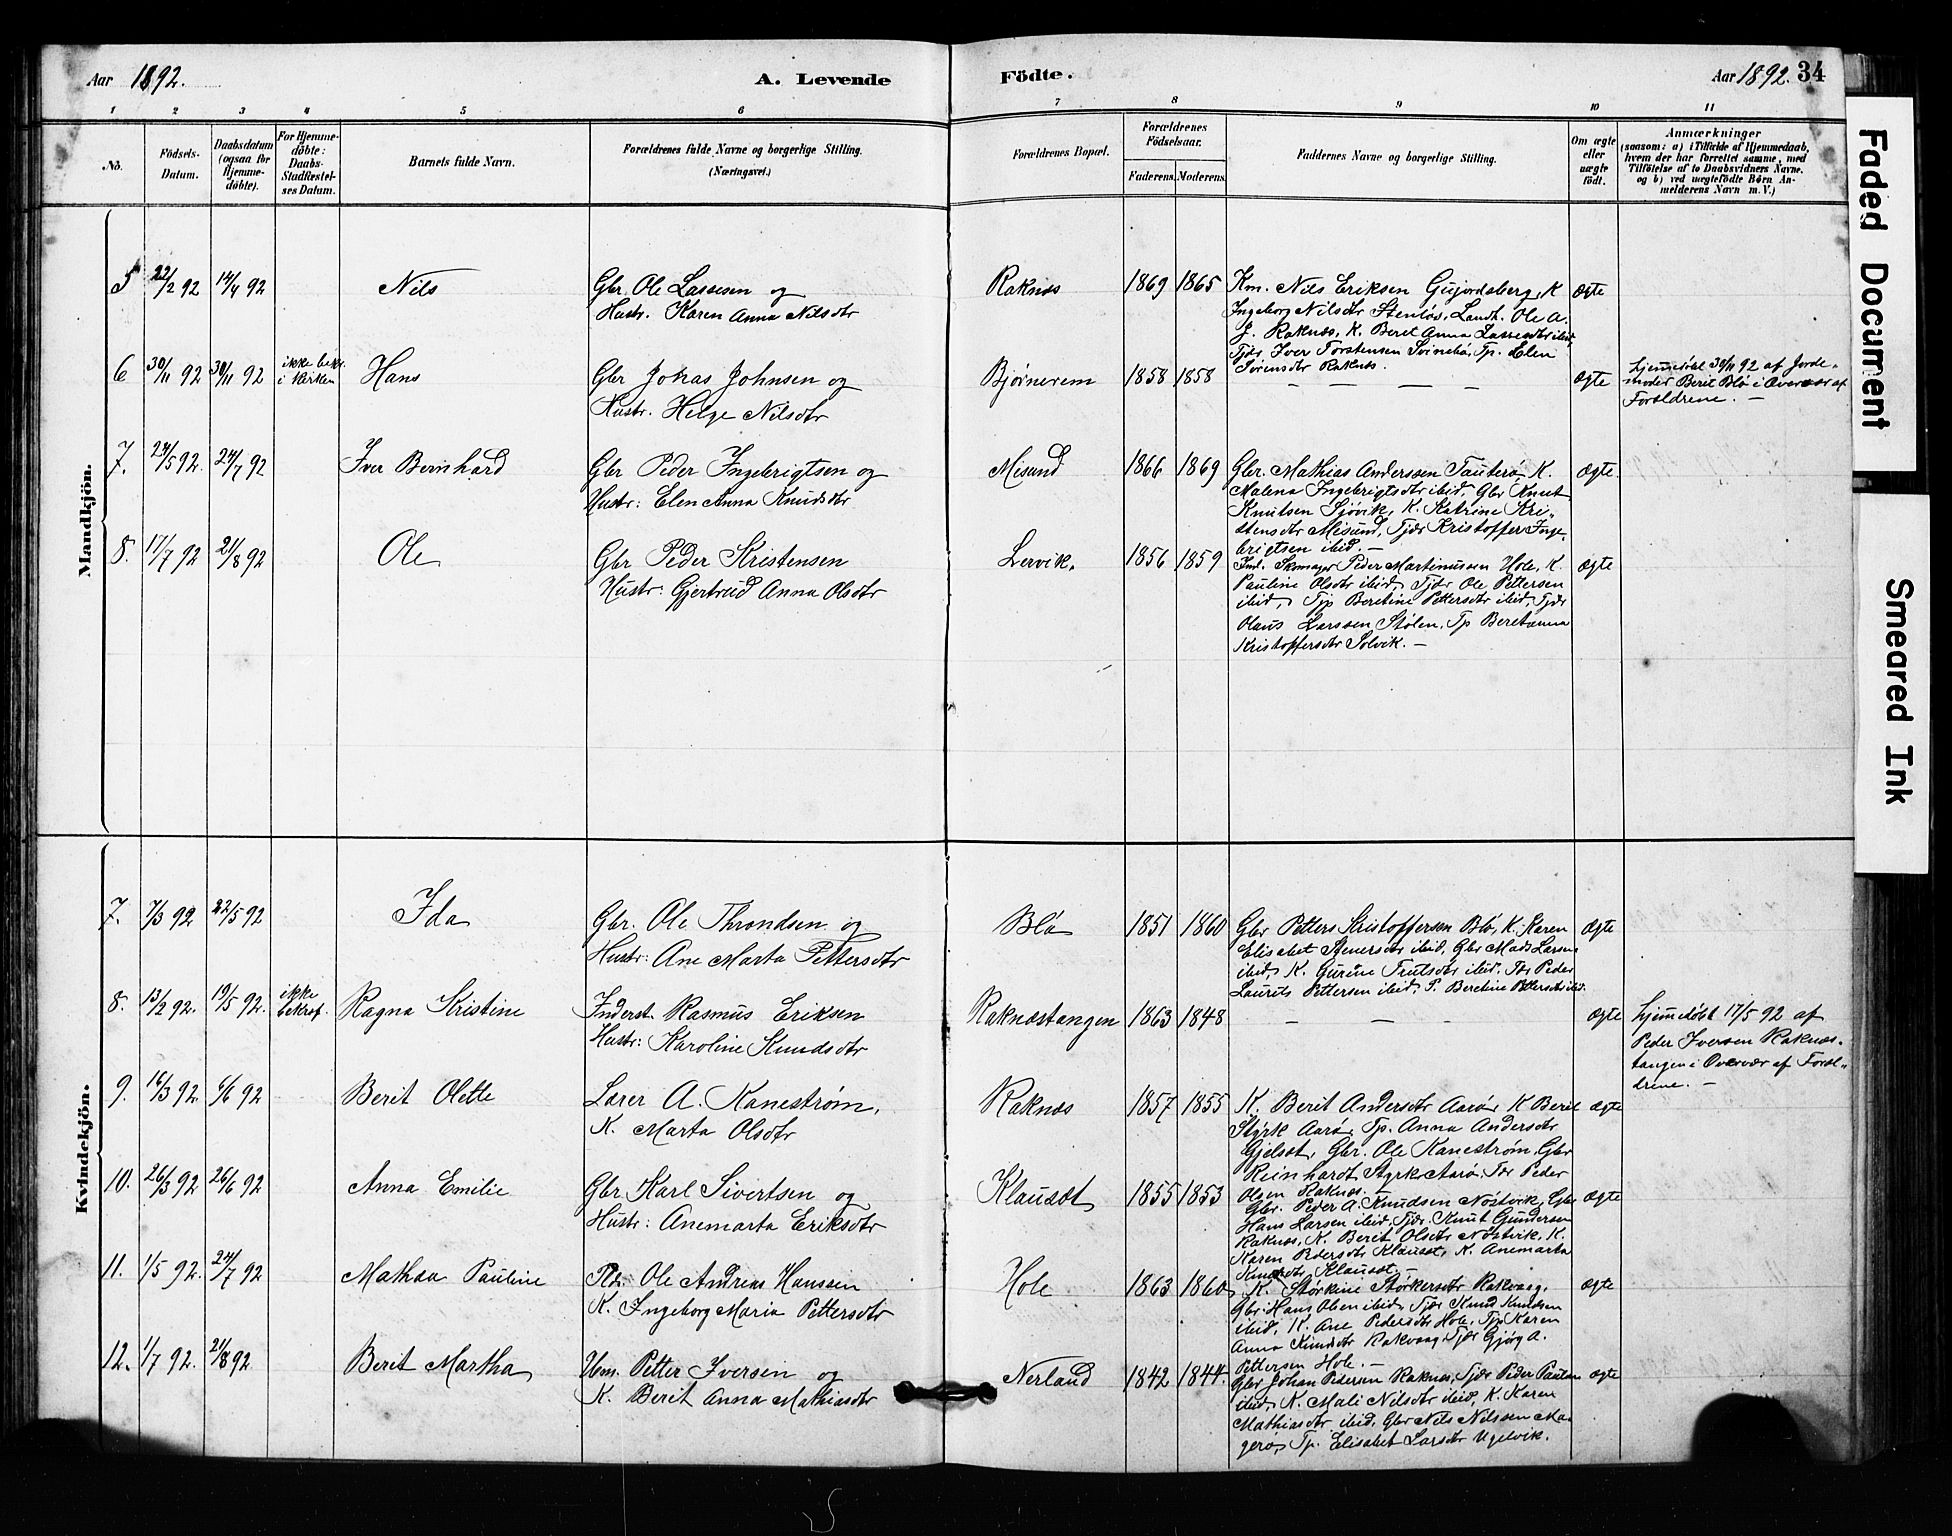 Aar 1892.
A. Levende
Födte.
Aar 1892. 34
1 2 3 4 5 6 7 8 9 10 11
No.
Födsels-
Datum.
Daabsdatum
(ogsaa for
Hjemme-
döbte).
For Hjemme-
döbte:
Daabs-
Stadfæstel-
ses Datum.
Barnets fulde Navn.
Forældrenes fulde Navne og borgerlige Stilling.
(Næringsvei.)
Forældrenes Bopæl.
Forældrenes
Födselsaar.
Faderens. Moderens.
Faddernes Navne og borgerlige Stilling.
Om ægte
eller
uægte
födt.
Anmærkninger
(saasom: a) i Tilfælde af Hjemmedaab,
hvem der har forrettet samme, med
Tilföielse af to Daabsvidners Navne.
og b) ved uægtefödte Børn An-
melderens Navn m. V.)
Mandkjön.
5 22/2 92 14/4 92 Nils
Gbr. Ole Lassesen og
Hustr. Karen Anna Nilsdtr
Raknæs 1869 1865
Km. Nils Eriksen Gujordsberg, K
Ingeborg Nilsdtr Stenløs, Landh. Ole A.
J. Raknæs, K. Beret Anna Lassesdtr ibid,
Tjdr. Iver Torstensen Svinebø, Tp. Elen
Sørensdtr Raknæs.
Ægte
6 30/11 92 30/11 92
ikke bekr.
i Kirken
Hans
Gbr Johas Johnsen og
Hustr. Helge Nilsdtr
Bjørnerem 1858 1858 — — — — Ægte
hjemmedøbt 30/11 92 af Jorde-
moder Berit Blø i Overvær af
Forældrene. —
7. 24/5 92. 24/7 92 Iver Bernhard
Gbr Peder Ingebrigtsen og
Hustr: Elen Anna Knudsdtr
Misund 1866 1869
Gbr. Mathias Anderssen Tauterø, K.
Malena Ingebrigtsdtr ibid, Gbr Knut
Knutsen Sjøvik, K. Katrine Kri-
stensdtr Misund, Tjdr Kristoffer Inge-
brigtsen ibid. —
Ægte.
8. 17/7 92 21/8 92 Ole
Gbr Peder Kristensen
Hustr: Gjertrud Anna Olsdtr
Lervik. 1856 1859
Ind. Skomager Peder Martinussen Hole, K.
Pauline Olsdtr ibid, Tjdr Ole Pettersen
ibid, Tjp Beretine Pettersdtr ibid, Tjdr
Olaus Larssen Stølen, Tp Beretanna
Kristoffersdtr Solvik. —
Ægte
Kvindekjön.
7. 7/3 92 22/5 92 Ida
Gbr. Ole Throndsen og
Hustr: Ane Marta Pettersdtr
Blø 1851 1860
Gbr Petters Kristoffersen Blø, K. Karen
Elisabet Stenersdtr ibid, Gbr Mads Larsen
ibid, K. Gurine Trulsdtr ibid, Tdr Peder
Laurits Pettersen ibid, P. Beretine Pettersdtr ibid.
Ægte
8. 13/2 92. 19/5 92.
ikke
bekræf.
Ragna Kristine
Inderst. Rasmus Eriksen
Hustr: Karoline Knudsdtr
Raknæstangen 1863 1848 — — — Ægte
hjemmedøbt 17/5 92 af
Peder Iversen Raknæs-
tangen i Overvær af Foræl-
drene. —
9. 16/3 92 6/6 92 Berit Olette
Lærer A. Kanestrøm,
K. Marta Olsdtr
Raknæs 1857 1855
K. Berit Andersdtr Aarø, K Berit
Styrk Aarø, Tp. Anna Andersdtr
Gjelsæt, Gbr. Ole Kanestrøm, Gbr
Reinhardt Styrk Aarø, Tdr Peder
Olsen Raknæs.
Ægte
10. 26/3 92 26/6 92 Anna Emilie
Gbr Karl Sivertsen og
Hustr: Anemarta Eriksdtr
Klausæt 1855 1853
Gbr. Peder A. Knudsen Nøstvik, Gbr
Hans Larsen ibid, Tjdr. Knut Gundersen
Raknæs, K. Berit Olsdtr Nøstvik, K.
Karen Pedersdtr Klausæt, K. Anemarta
Knudsdtr Klausæt. —
Ægte
11. 1/5 92. 24/7 92 Mathea Pauline
Ole Andreas Hanssen
K. Ingeborg Maria Pettersdtr
Hole 1863 1860
K. Størkine Størkersdtr Rakvaag,
Gbr. Hans Olsen ibid, Tjdr Knud Knudsen
ibid, K. Ane Pedersdtr Hole, Tjp Karen
Anna Knudsdtr Rakvaag, Tjdr Gjørg A.
Pettersen Hole. —
Ægte
12. 1/7 92. 21/8 92 Berit Martha
Hm. Petter Iversen og
K. Berit Anna Mathiasdtr
Nerland 1842 1844.
Gbr Johan Pedersen Raknæs, Tjdr Peder Paulsen
ibid, K. Mali Nilsdtr ibid, K. Karen
Mathiasdtr ibid, Gbr Nils Nilssen Ma-
gerø, Tp. Elisabet Larsdtr Ugelvik.
Ægte
Faded Document
Smeared Ink